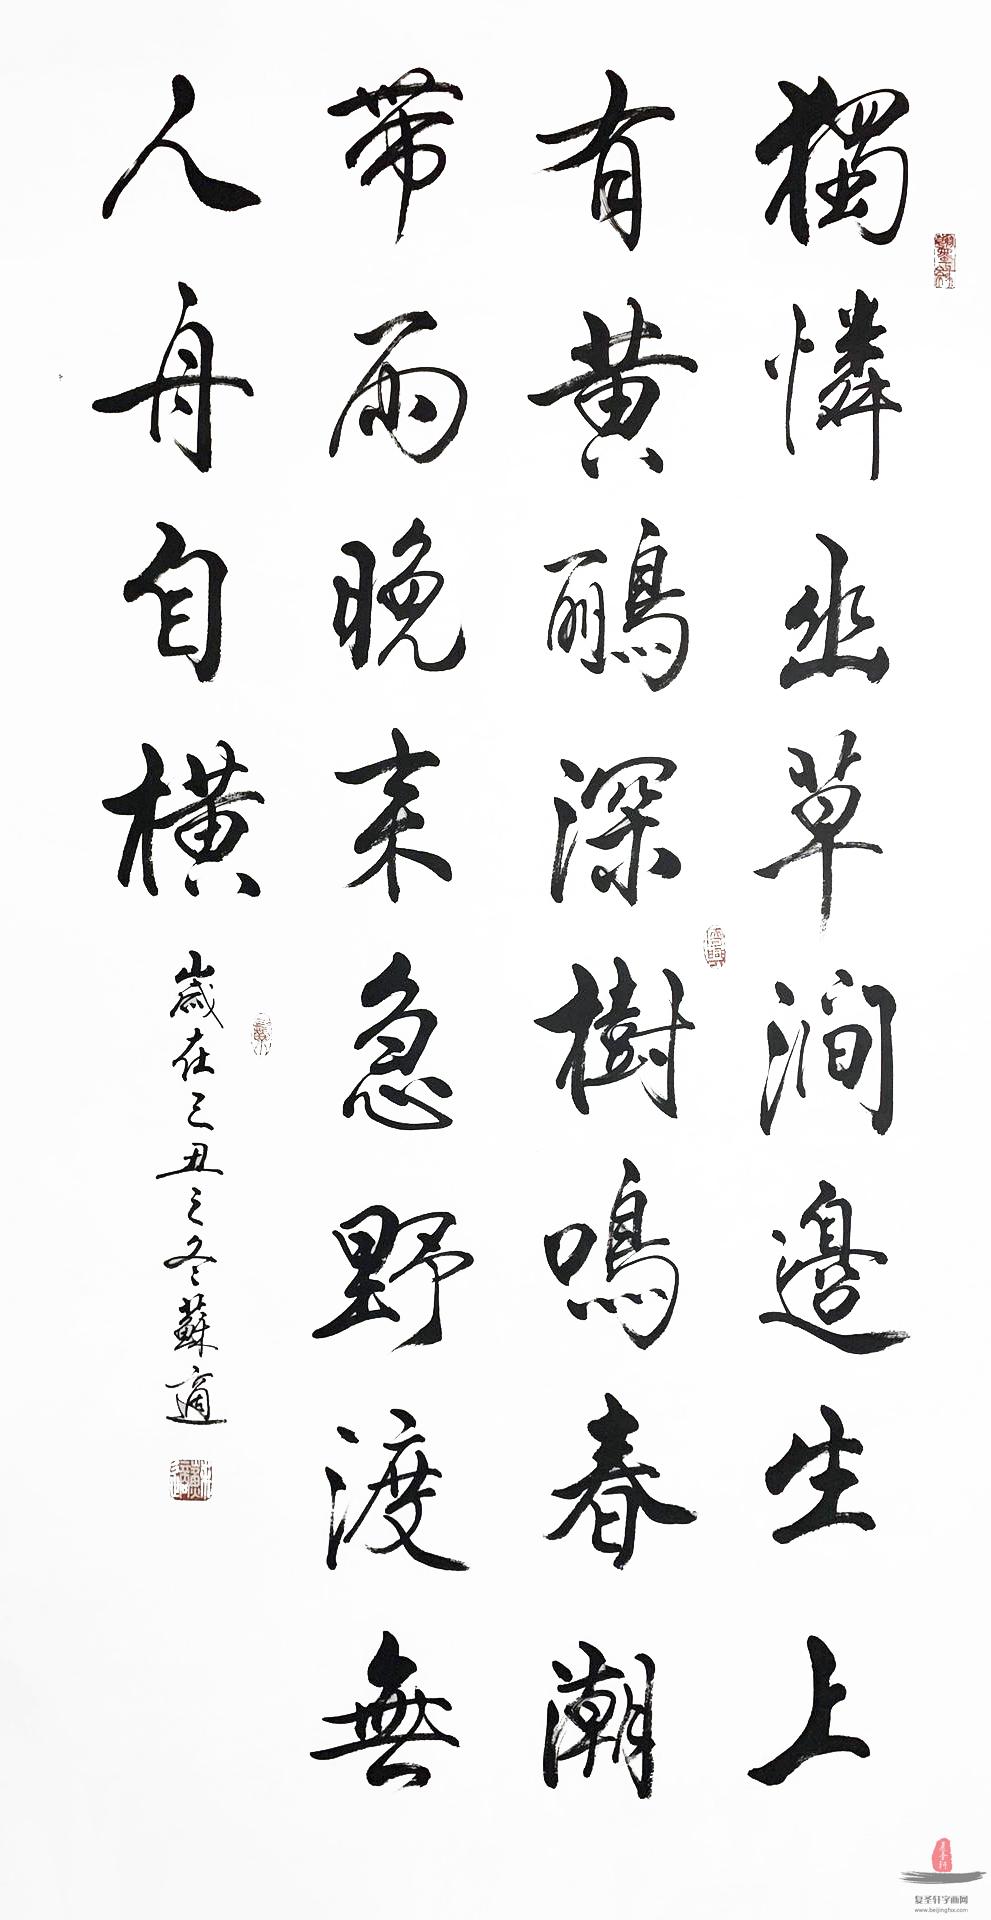 獨憐幽草澗邊生上
有黄鸝深樹鳴春潮
帶雨晚来急野渡無
人舟自横
歲在己丑之冬蘇適
复圣轩字画网
www.beijinghx.com